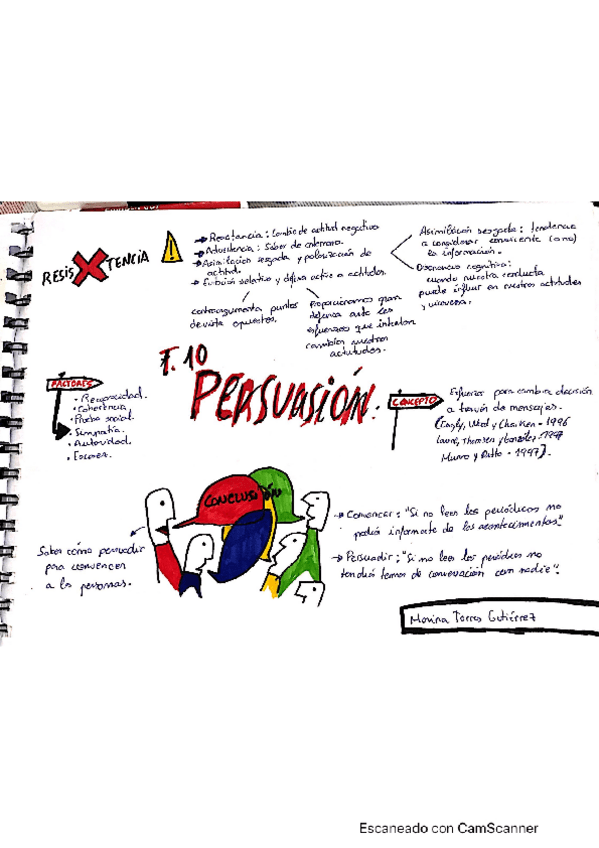 RESISTENCIA
→ Reactancia: Cambio de actitud negativo
→ Advertencia: Saber de antemano.
→ Asimilación sesgada y polarización de
actitud.
→ Evitación selectiva y defensa activa a actitudes.
contraargumenta puntos
de vista opuestos.
Proporcionamos gran
defensa ante los
esfuerzos que intentan
cambiar nuestras
actitudes.
Asimilación sesgada: tendencia
a considerar
la información.
Disonancia cognitiva:
cuando nuestra conducta
puede influir en nuestras actitudes
y viceversa.
T. 10
PERSUASIÓN.
FACTORES
• Reciprocidad.
• Coherencia
• Prueba social.
• Simpatía.
• Autoridad.
• Escasez.
CONCEPTO
Esfuerzo para cambiar decisión
a través de mensajes.
(Eagly, Wood y Chaiken - 1996
1997
- 1997).
CONCLUSIÓN
Saber cómo persuadir
para convencer
a las personas.
→ Convencer: "Si no lees los periódicos no
podrás informarte de los acontecimientos"
→ Persuadir: "Si no lees los periódicos no
tendrás temas de conversación con nadie".
Marina Torres Gutiérrez
Escaneado con CamScanner